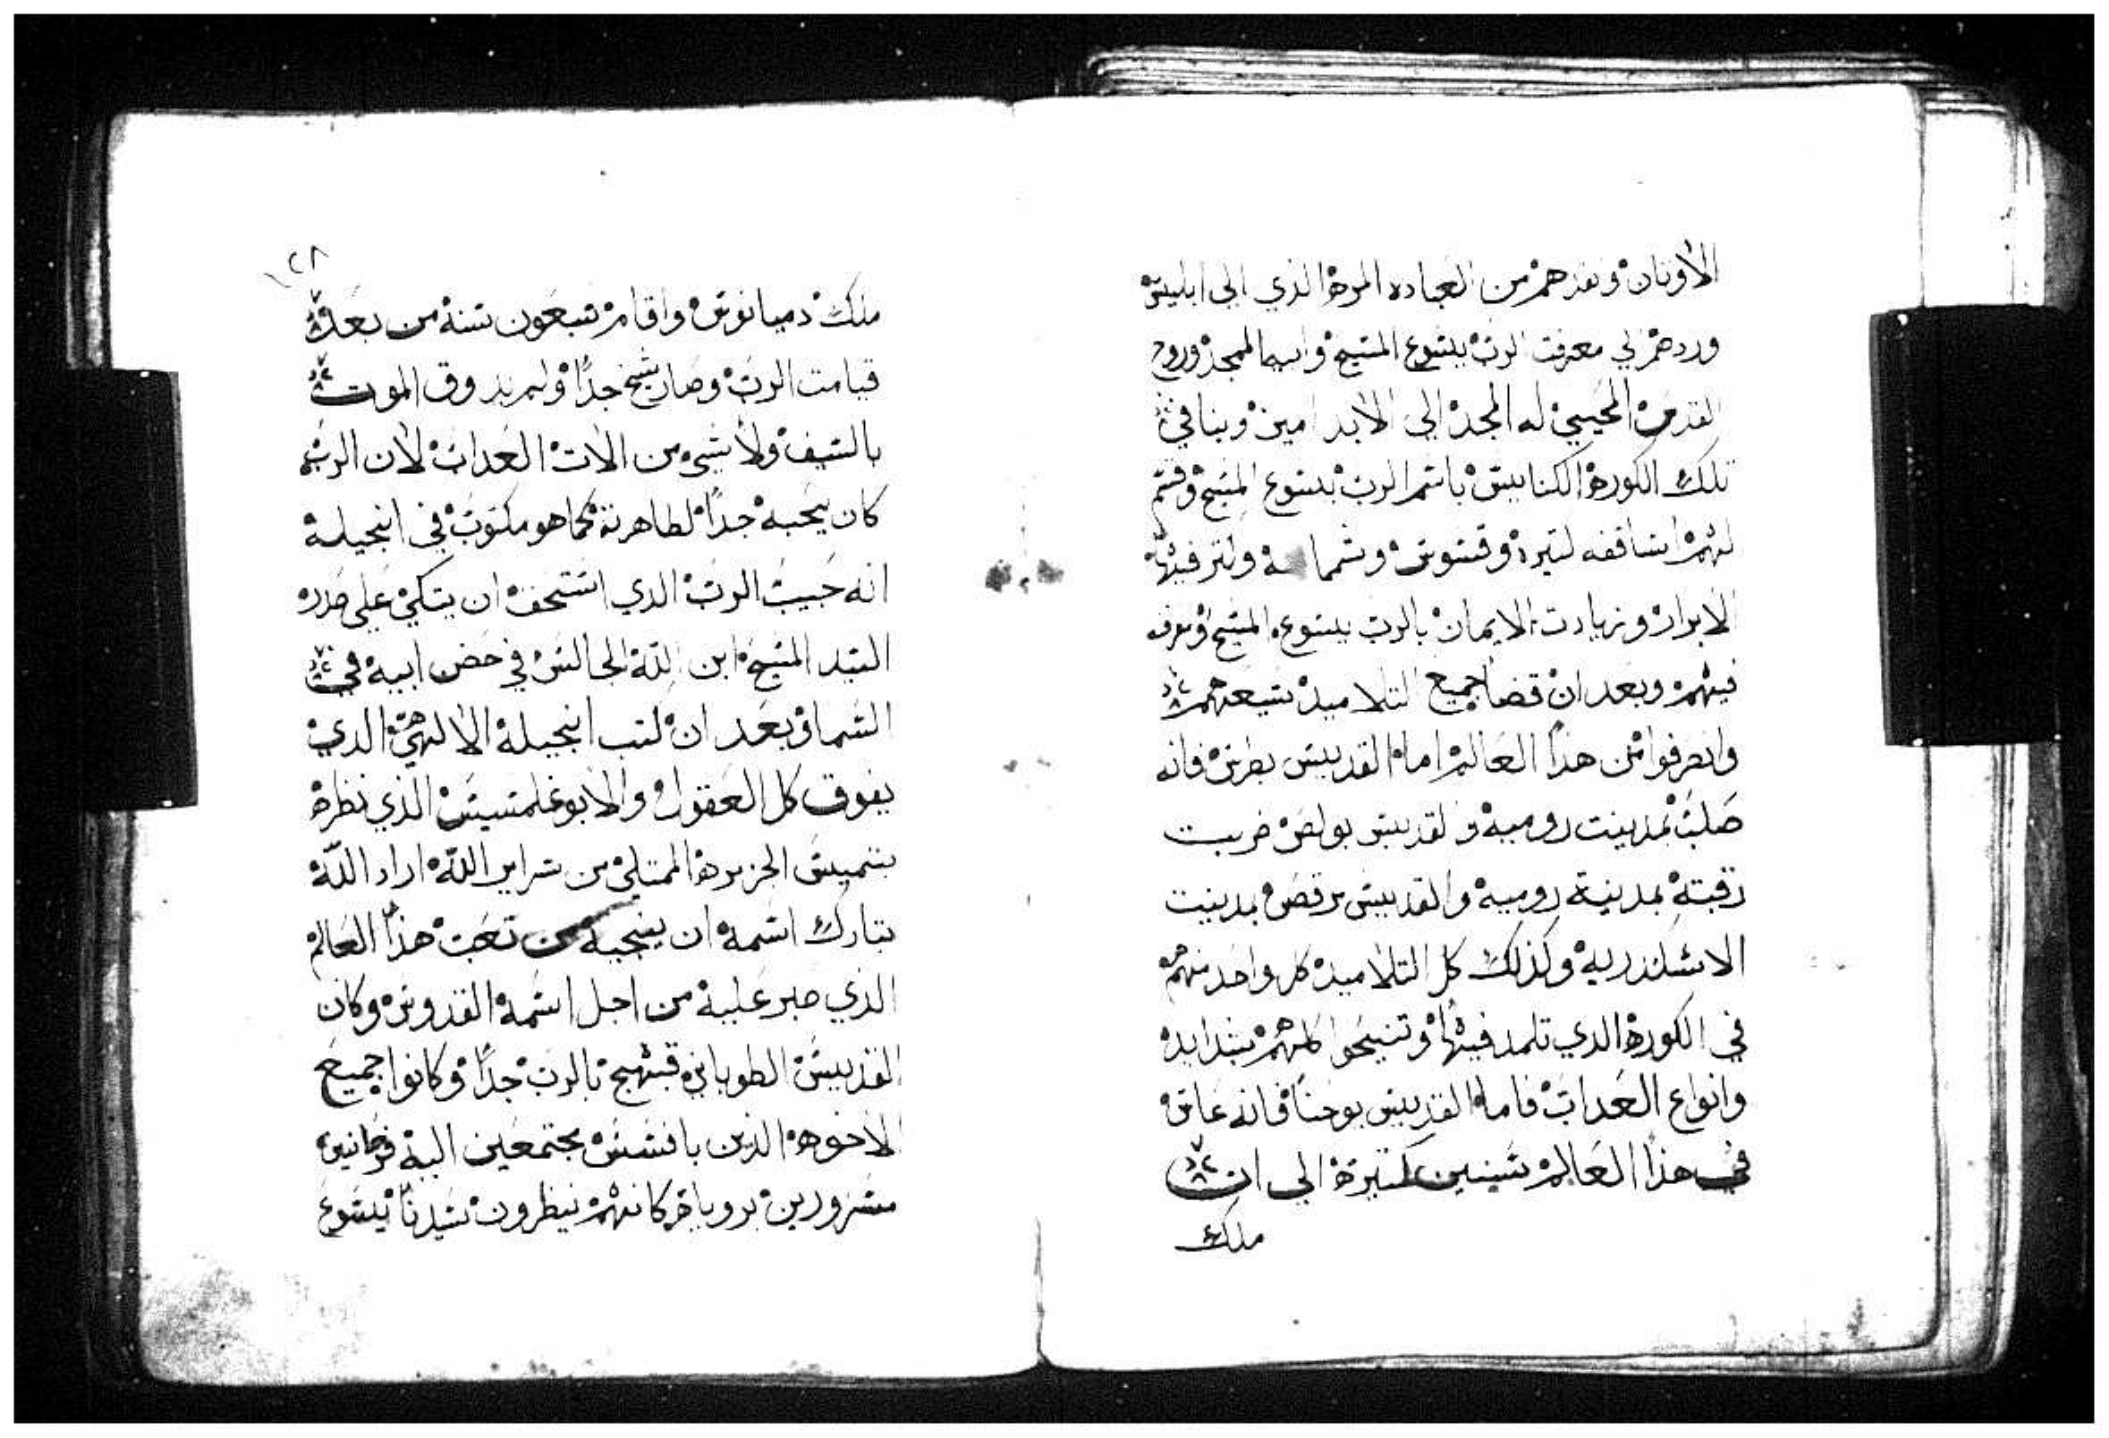 الاوتان وبعدهم من العباده المره الذي الي ابليس
وردهم الي معرفت الرب يسوع المسيح وابيه الممجد وروح
القدس المحيي له المجد الي الابد امين وبنا في
تلك الكوره الكنايس باسم الرب يسوع المسيح وقسم
لهم اساقفه كتيره وقسوس وشمامسه وكتر فيها
الابرار وزيادت الايمان بالرب يسوع المسيح ومعرفه
فيهم وبعد ان قضا جميع التلاميد سعيهم
وانصرفوا من هذا العالم اما القديس بطرس فانه
صلب بمدينت روميه والقديس بولص ضربت
رقبته بمدينة روميه والقديس مرقص بمدينت
الاسكندريه وكذلك كل التلاميد كل واحد منهم
في الكوره الدي تلمد فيها وتنيحوا كلهم بشدايد
وانواع العداب فاما القديس يوحنا فانه عاش
في هذا العالم سنين كتيرة الي ان
ملك
٢٨
ملك دميانوس واقام سبعون سنه من بعد
قيامت الرب وصار شيخ جدا ولم يدوق الموت
بالسيف ولا شي من الات العداب لان الرب
كان يحبه جدا لطاهرته كما هو مكتوب في انجيله
انه حبيب الرب الدي استحق ان يتكي علي صدره
السيد المسيح ابن الله الجالس في حضن ابيه في
السما وبعد ان كتب انجيله الالهي الدي
يفوق كل العقول والابوغلمسيس الذي نظره
بتميس الجزيره الممتلي من سراير الله اراد الله
تبارك اسمه ان ينجيه من تعب هذا العالم
الذي صبر عليه من اجل اسمه القدوس وكان
القديس الطوباني يبتهج بالرب جدا وكانوا جميع
الاخوه الذين بافسس مجتمعين اليه فرحانين
مسرورين بروياه كانهم ينظرون سيدنا يسوع